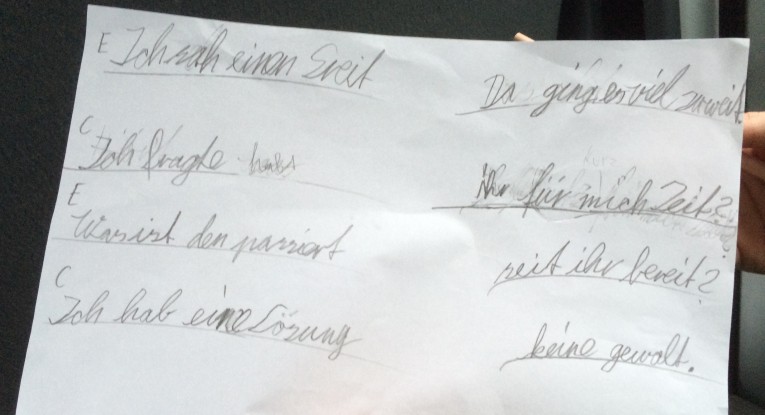 E Ich sah einen Sreit Da ging es viel zuweit.
C Ich fragte habt ihr für mich Zeit?
E Was ist den passiert seit ihr bereit?
C Ich hab eine Lösung keine gewalt.